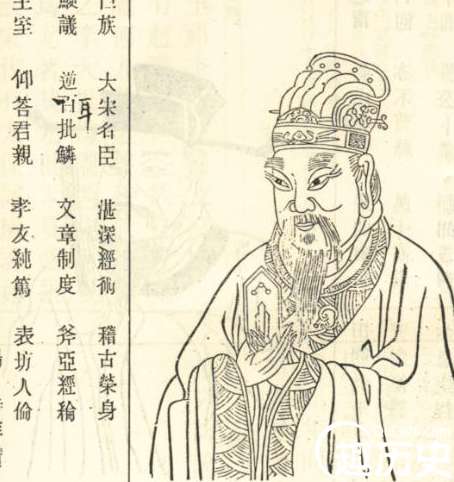 族 大宋名臣 湛深經術 稽古榮身
議 逆耳批鱗 文章制度 斧亞經綸
室 仰答君親 孝友純篤 表坊人倫
趣历史